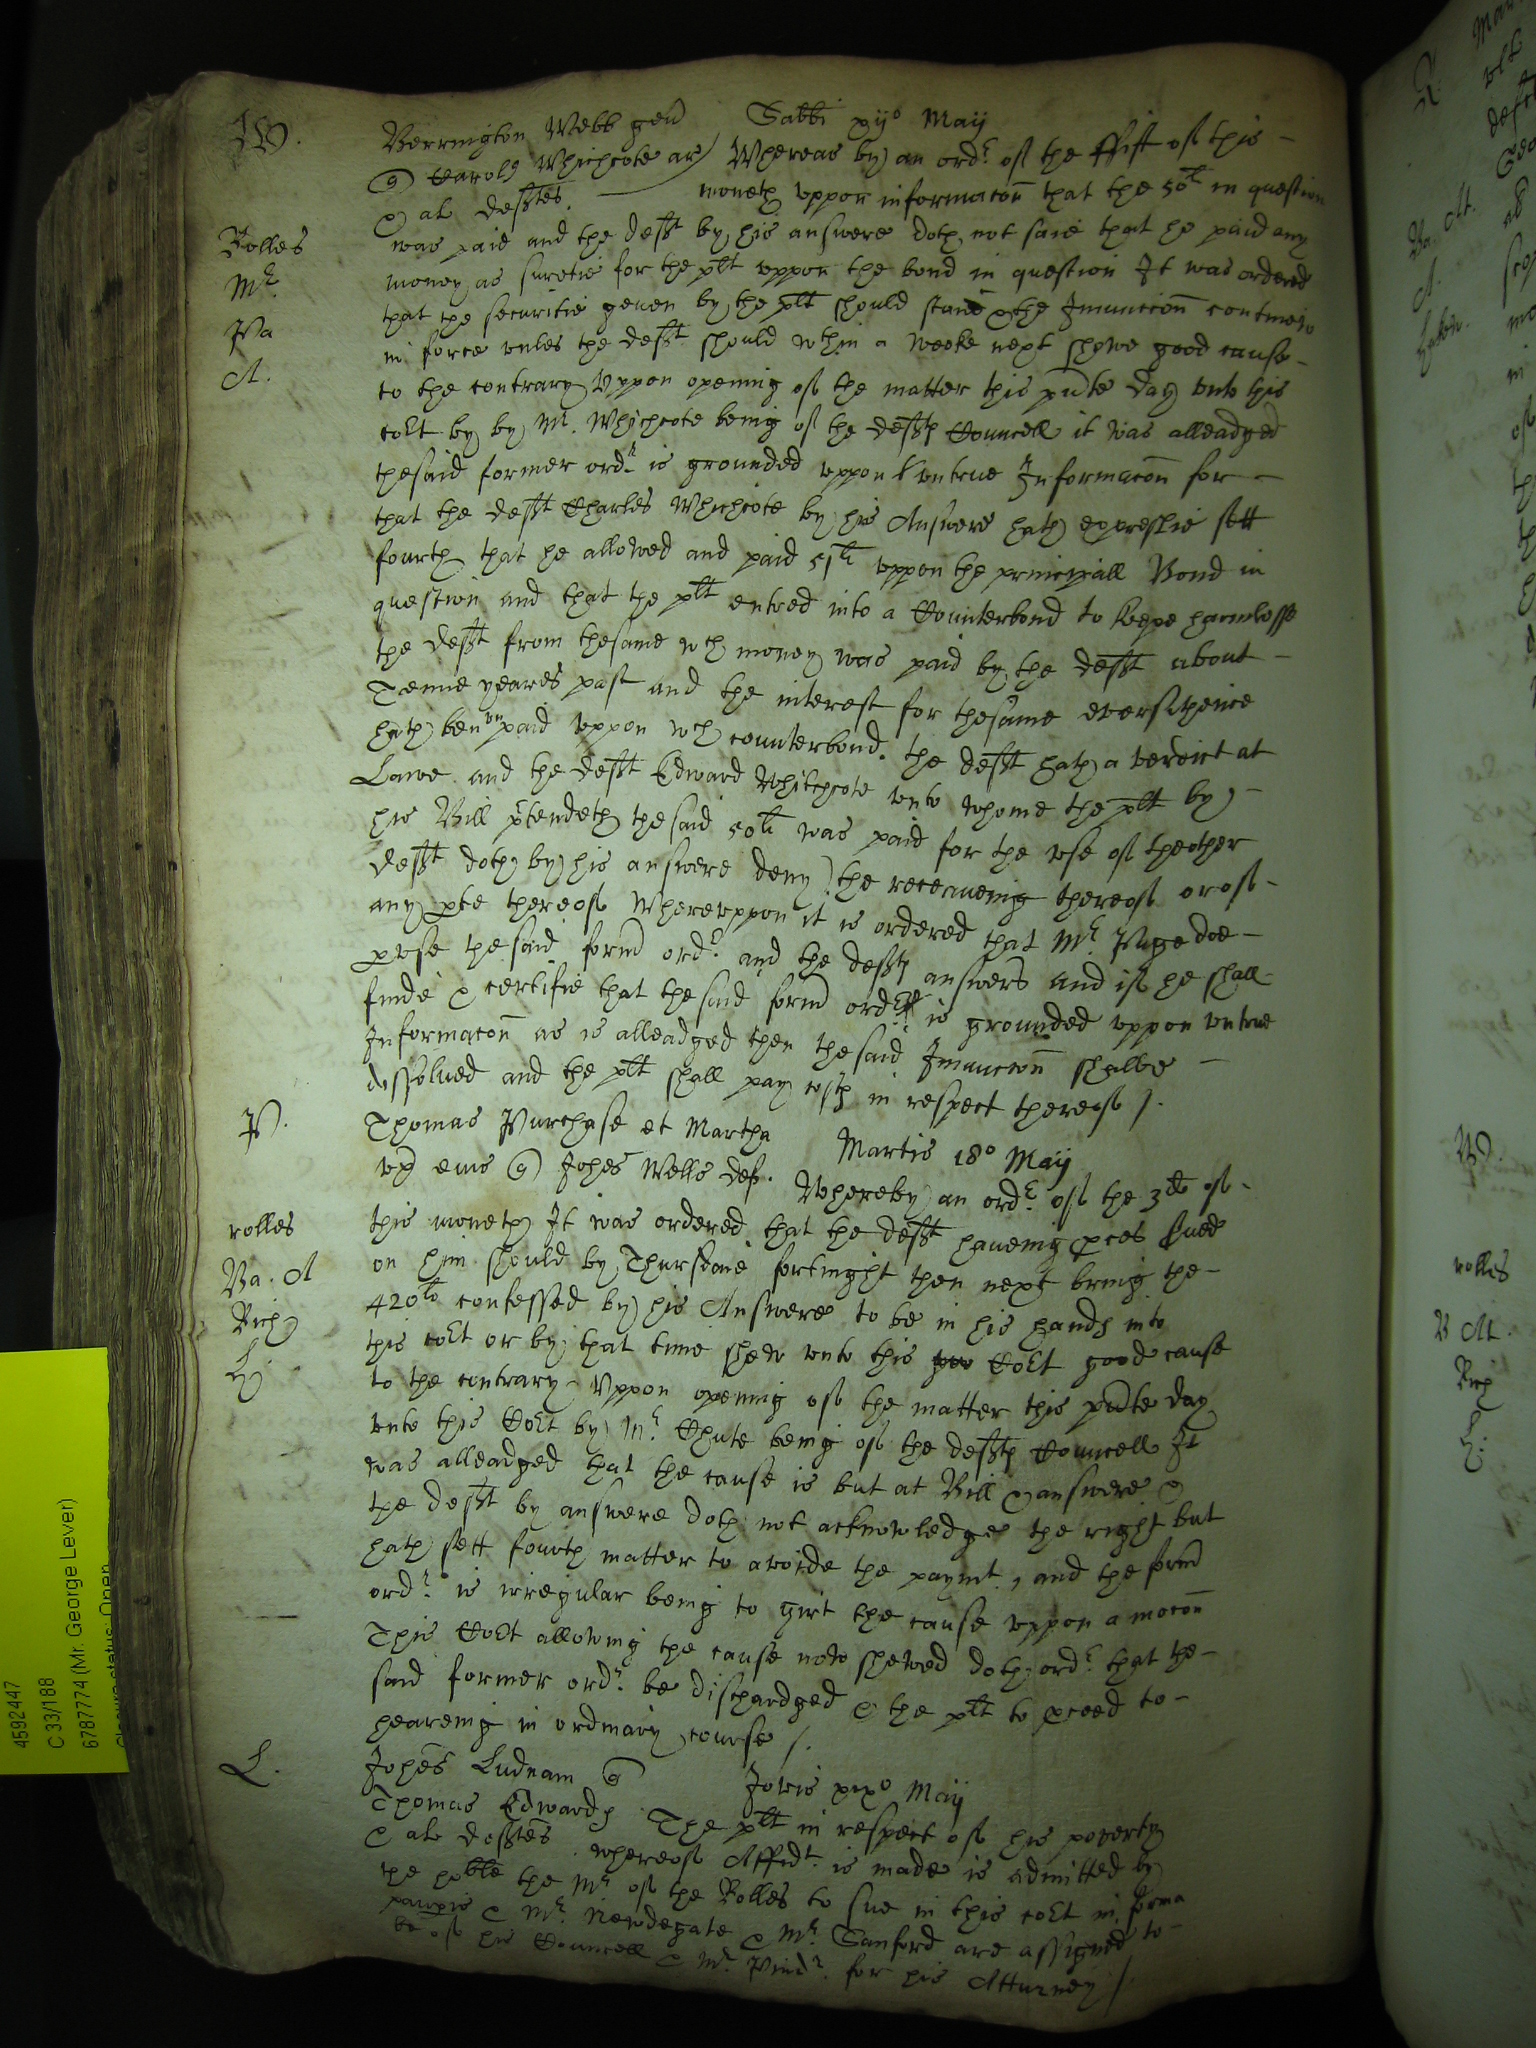 W.
Berrington Webb gen̄ Sabbi xijo Maij
Carolū Whichcote ar Whereas by an ordr. of the ffift of this
& al defftes. moneth vppon informacon̄ that the 50li in question
Rolles
was paid and the defft by his answere doth not saie that he paid any
Mr.
money as suretie for the plt vppon the bond in question It was ordered
that the securitie geuen by the plt should stand & the Iniunccon̄ continew
Pa
in force vnles the defft should wthin a weeke next shewe good cause
A.
to the contrary Vppon opening of the matter this pn̄te day vnto this
cort by by Mr. Whichcote being of the deffts Councell it was alleadged
thesaid former ordr. is grounded vppon vntrue Informacon̄ for
that the defft Charles Whichcote by his Answere hath expreslie sett
fourth that he allowed and paid 51li vppon the principall Bond in
question and that the plt entred into a Counterbond to keepe harmlesse
the defft from thesame wch money was paid by the defft about
Tenne yeares past and the interest for thesame eversithence
hath ben vnpaid vppon wch counterbond. the defft hath a verdict at
Lawe and the defft Edward Whitchcote vnto whome the plt by
his Bill p̄tendeth the said 50li was paid for the vse of theother
defft doth by his answere deny the receaueing thereof or of
any pte thereof Wherevppon it is ordered that Mr. Page doe
pvse the said form̄ ordr. and the deffts answers and if he shall
finde & certifie that the said form̄ ordr is grounded vppon vntrue
Informacon̄ as is alleadged then the said Iniunccon̄ shalbe
dissolued and the plt shall pay costs in respect thereof /.
P.
Thomas Purchase et Martha Martis 18o Maij
vx eius Johes Wells def. Whereby an ordr. of the 3d of
rolles
this moneth It was ordered that the defft haueing pces sued
Ba. A
on him should by Thursdaie fortnight then next bring the
420li confessed by his Answere to be in his hands into
Rich
this cort or by that time shew vnto this Cort good cause
to the contrary. Vppon opening of the matter this pn̄te day
vnto this Cort by Mr. Chute being of the deffts Councell It
was alleadged that the cause is but at Bill & answere &
the defft by answere doth not acknowledge the right but
hath sett fourth matter to avoide the paymt, and the form̄
ordr. is irregular being to the cause vppon a mocon̄
This Cort allowing the cause now shewed doth ordr. that the
said former ordr. be dischardged & the plt to pceed to
heareing in ordinary course /.
L.
Johēs Ludnam Jovis xixo Maij
Thomas Edwards The plt in respect of his poverty
& al defftes. whereof Affidt. is made is admitted by
the hoble the Mr of the Rolles to sue in this cort in forma
paupis & Mr. Newdegate & Mr. Sanford are assigned to
be of his Councell & Mr. for his Atturney /
4592447
C 33/188
6787774 (Mr. George Lever)
Closure status: Open
W.
rolles
B A.
Rich